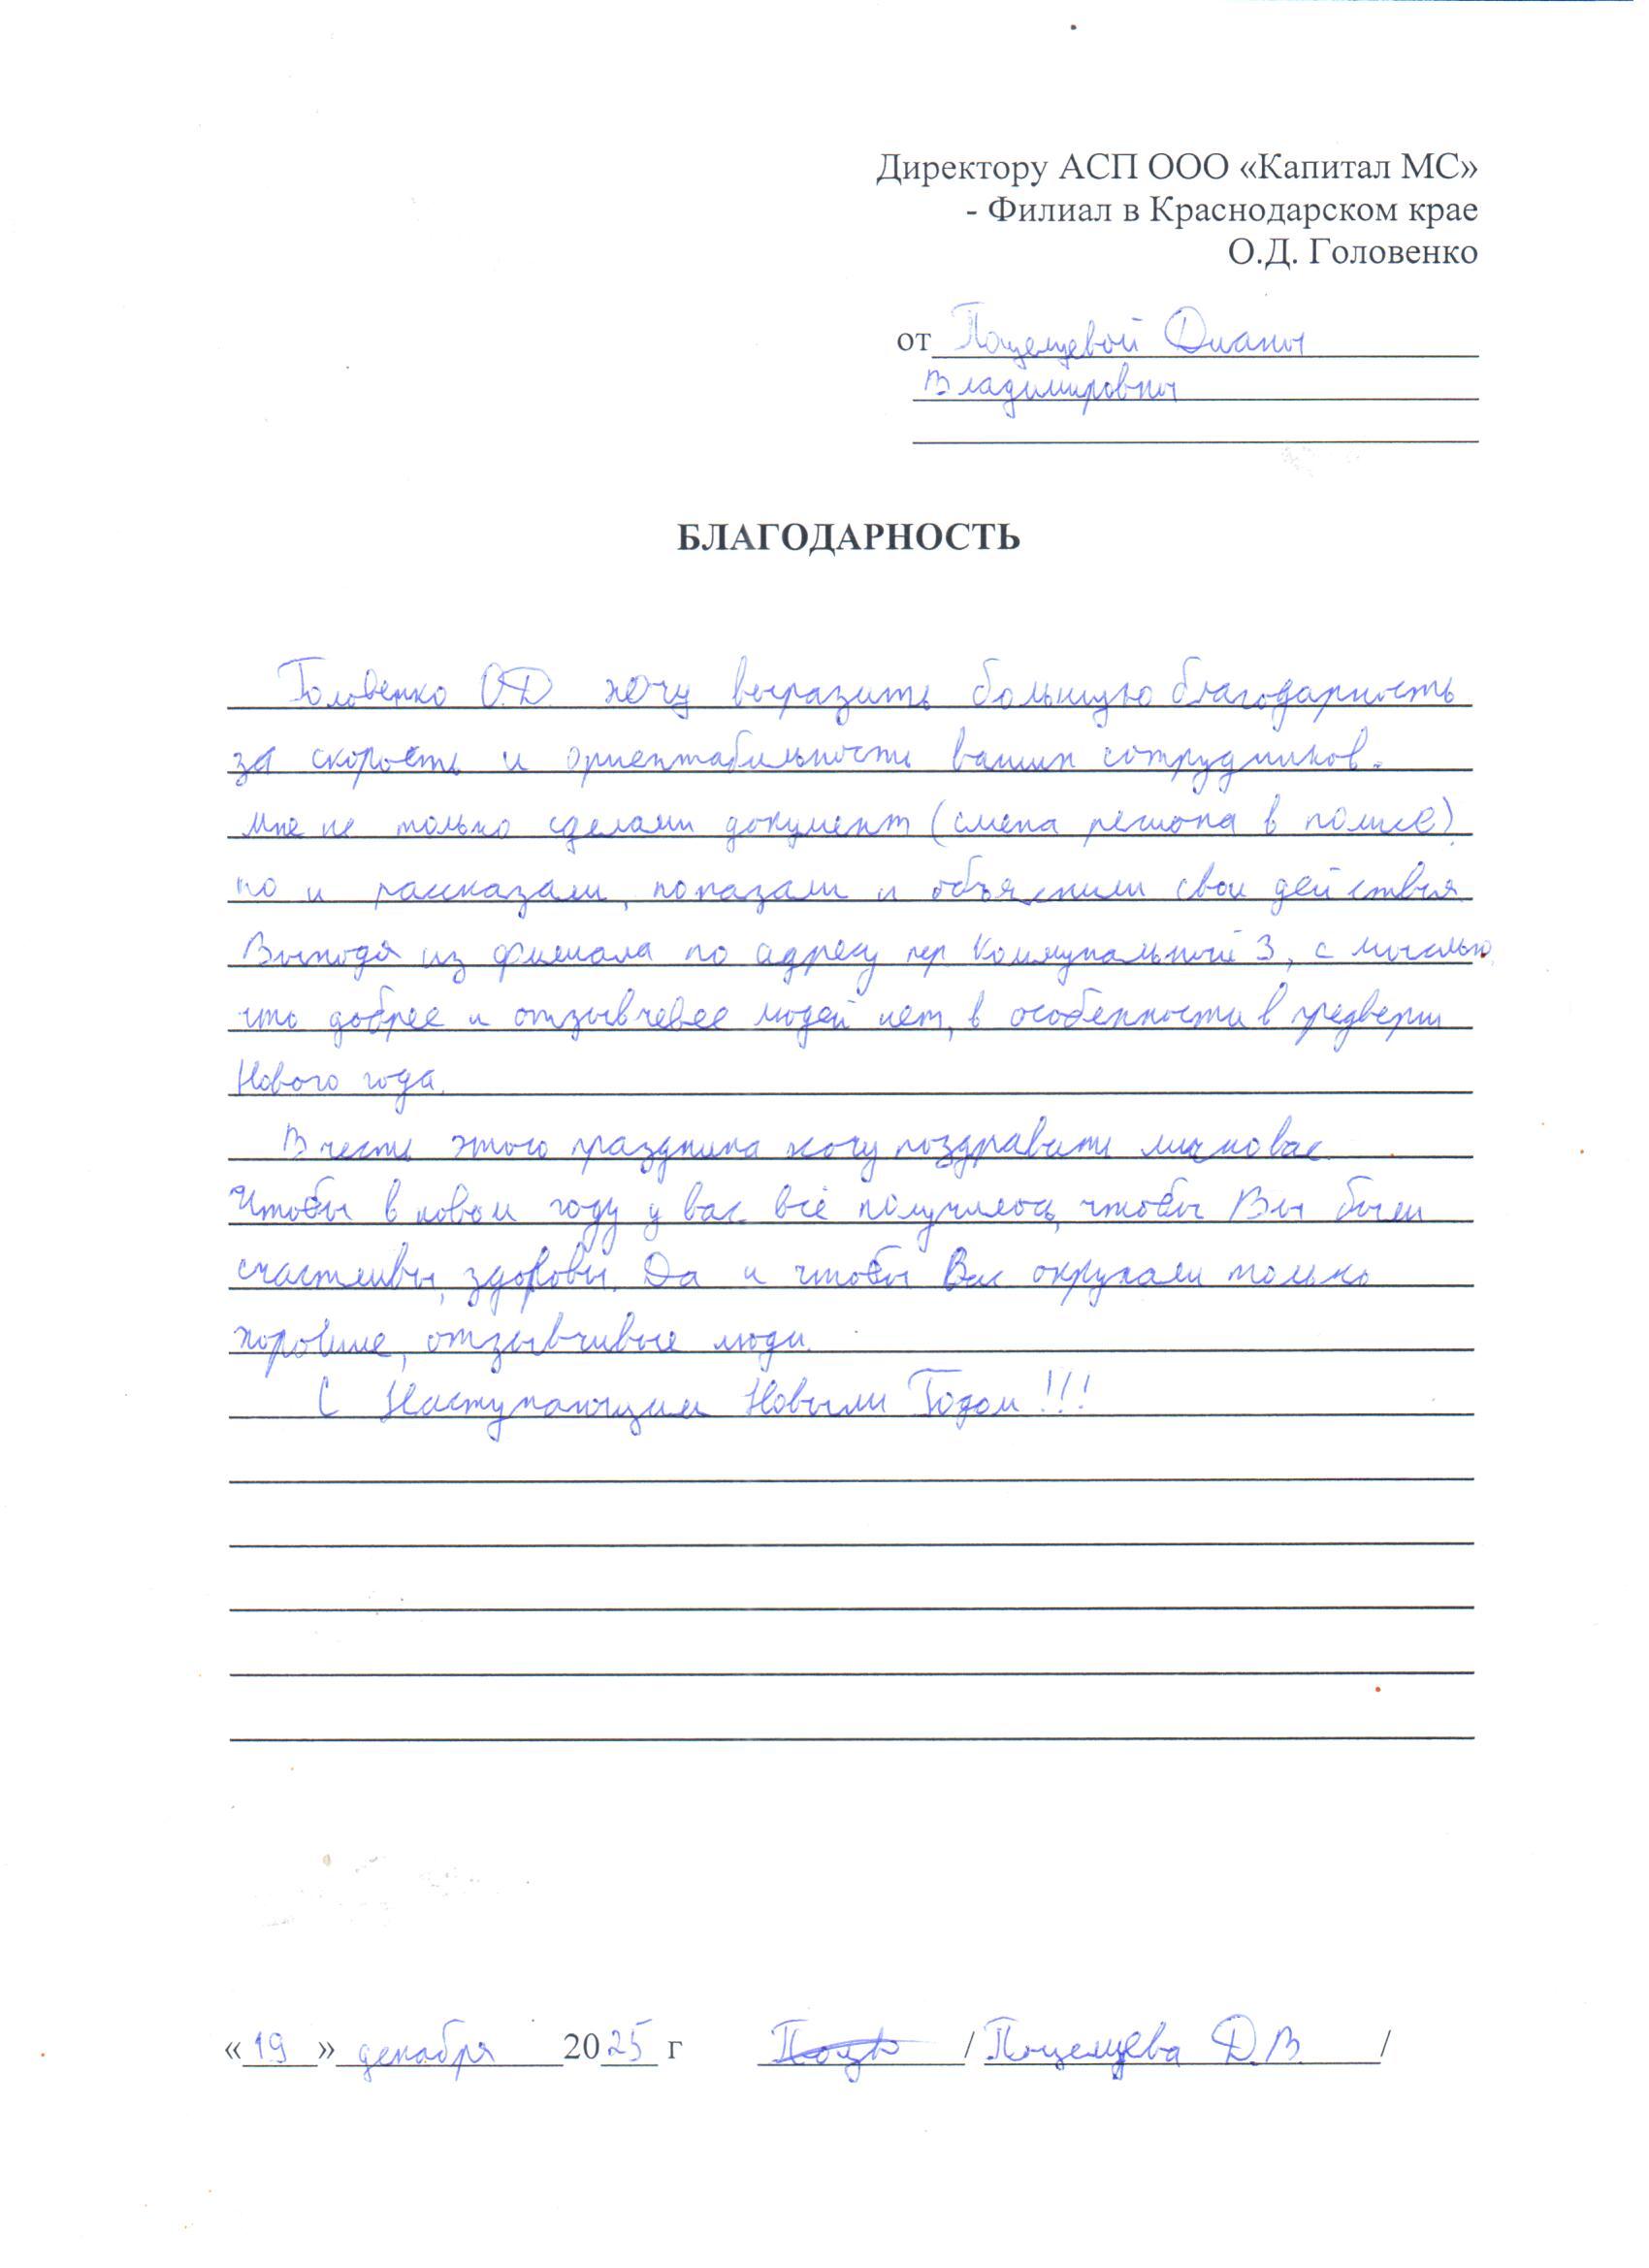 Директору АСП ООО «Капитал МС»
- Филиал в Краснодарском крае
О.Д. Головенко
от Поцелуевой Дианы
Владимировны
БЛАГОДАРНОСТЬ
Головенко О.Д. хочу выразить большую благодарность
за скорость и ориентабильность ваших сотрудников.
Мне не только сделали документ (смена региона в полисе)
но и рассказали, показали и объяснили свои действия
Выходя из филиала по адресу пер Коммунальный 3, с мыслью,
что добрее и отзывчевее людей нет, в особенности в предверии
Нового года.
В честь этого праздника хочу поздравить лично вас.
Чтобы в новом году у вас всё получилось, чтобы Вы были
счастливы, здоровы. Да и чтобы Вас окружали только
хорошие, отзывчивые люди.
С Наступающим Новым Годом!!!
«19» декабря 2025 г / Поцелуева Д.В. /